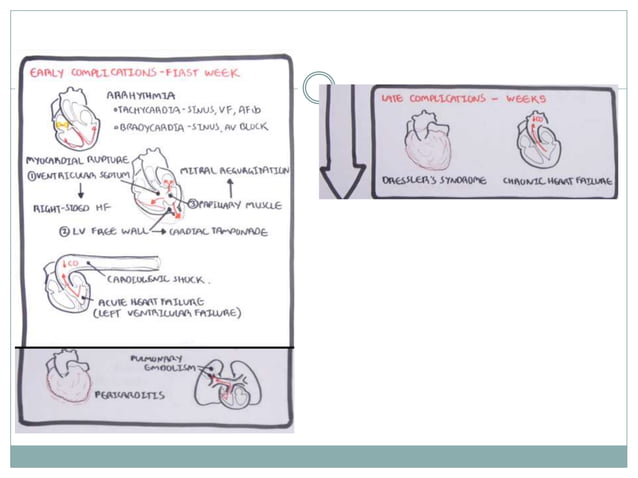 EARLY COMPLICATIONS - FIRST WEEK
ARRHYTHMIA
•TACHYCARDIA - SINUS, VF, AFib
•BRADYCARDIA - SINUS, AV BLOCK
MYOCARDIAL RUPTURE
① VENTRICULAR SEPTUM
MITRAL REGURGITATION
RIGHT-SIDED HF
③ PAPILLARY MUSCLE
② LV FREE WALL → CARDIAL TAMPONADE
↓CO
CARDIOGENIC SHOCK.
ACUTE HEART FAILURE
(LEFT VENTRICULAR FAILURE)
PULMONARY
EMBOLISM
PERICARDITIS
LATE COMPLICATIONS - WEEKS
↓CO
DRESSLER'S SYNDROME
CHRONIC HEART FAILURE